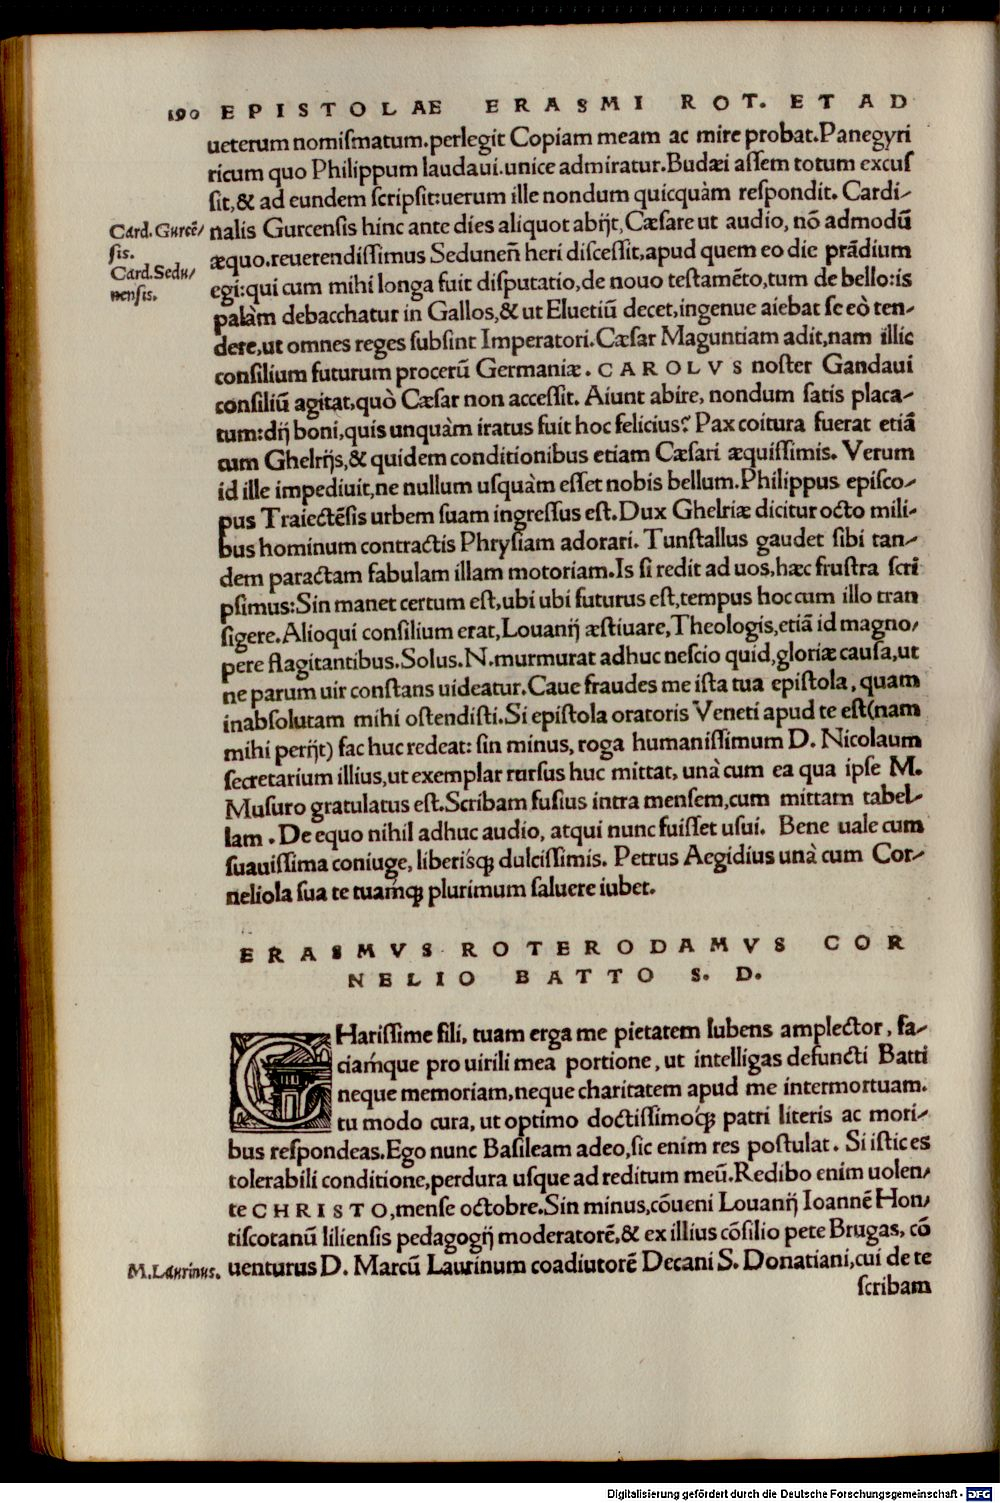 190 EPISTOLAE ERASMI ROT. ET AD
ueterum nomiſmatum.perlegit Copiam meam ac mire probat.Panegyri
ricum quo Philippum laudaui.unice admiratur.Budæi aſſem totum excuſ
ſit,& ad eundem ſcripſit:uerum ille nondum quicquàm reſpondit. Cardi-
Card. Gurcē/
ſis.
nalis Gurcenſis hinc ante dies aliquot abijt,Cæſare ut audio, nō admodū
æquo.reuerendiſſimus Seduneñ heri diſceſſit,apud quem eo die prādium
Card.Sedu/
nenſis.
egi:qui cum mihi longa fuit diſputatio,de nouo teſtamēto,tum de bello:is
palàm debacchatur in Gallos,& ut Eluetiū decet,ingenue aiebat ſe eò ten-
dere,ut omnes reges ſubſint Imperatori.Cæſar Maguntiam adit,nam illic
conſilium futurum procerū Germaniæ. CAROLVS noſter Gandaui
conſiliū agitat,quò Cæſar non acceſſit. Aiunt abire, nondum ſatis placa-
tum:dij boni,quis unquàm iratus fuit hoc felicius? Pax coitura fuerat etiā
cum Ghelrijs,& quidem conditionibus etiam Cæſari æquiſſimis. Verum
id ille impediuit,ne nullum uſquàm eſſet nobis bellum.Philippus epiſco-
pus Traiectēſis urbem ſuam ingreſſus eſt.Dux Ghelriæ dicitur octo mili-
bus hominum contractis Phryſiam adorari. Tunſtallus gaudet ſibi tan-
dem paractam fabulam illam motoriam.Is ſi redit ad uos,hæc fruſtra ſcri
pſimus:Sin manet certum eſt,ubi ubi futurus eſt,tempus hoc cum illo tran
ſigere.Alioqui conſilium erat,Louanij æſtiuare,Theologis,etiā id magno/
pere flagitantibus.Solus.N.murmurat adhuc neſcio quid,gloriæ cauſa,ut
ne parum uir conſtans uideatur.Caue fraudes me iſta tua epiſtola, quam
inabſolutam mihi oſtendiſti.Si epiſtola oratoris Veneti apud te eſt(nam
mihi perijt) fac huc redeat: ſin minus, roga humaniſſimum D. Nicolaum
ſecretarium illius,ut exemplar rurſus huc mittat, unà cum ea qua ipſe M.
Muſuro gratulatus eſt.Scribam fuſius intra menſem,cum mittam tabel-
lam . De equo nihil adhuc audio, atqui nunc fuiſſet uſui. Bene uale cum
ſuauiſſima coniuge, liberisq; dulciſſimis. Petrus Aegidius unà cum Cor-
neliola ſua te tuamq; plurimum ſaluere iubet.
ERASMVS ROTERODAMVS COR
NELIO BATTO S. D.
CHariſſime fili, tuam erga me pietatem lubens amplector, fa-
ciamque pro uirili mea portione, ut intelligas defuncti Batti
neque memoriam,neque charitatem apud me intermortuam.
tu modo cura, ut optimo doctiſſimoq; patri literis ac mori-
bus reſpondeas.Ego nunc Baſileam adeo,ſic enim res poſtulat. Si iſtic es
tolerabili conditione,perdura uſque ad reditum meū.Redibo enim uolen/
te CHRISTO,menſe octobre.Sin minus,cōueni Louanij Ioannē Hon/
tiſcotanū lilienſis pedagogij moderatorē,& ex illius cōſilio pete Brugas, cō
M.Laurinus.
uenturus D. Marcū Laurinum coadiutorē Decani S. Donatiani,cui de te
ſcribam
Digitalisierung gefördert durch die Deutsche Forschungsgemeinschaft - DFG